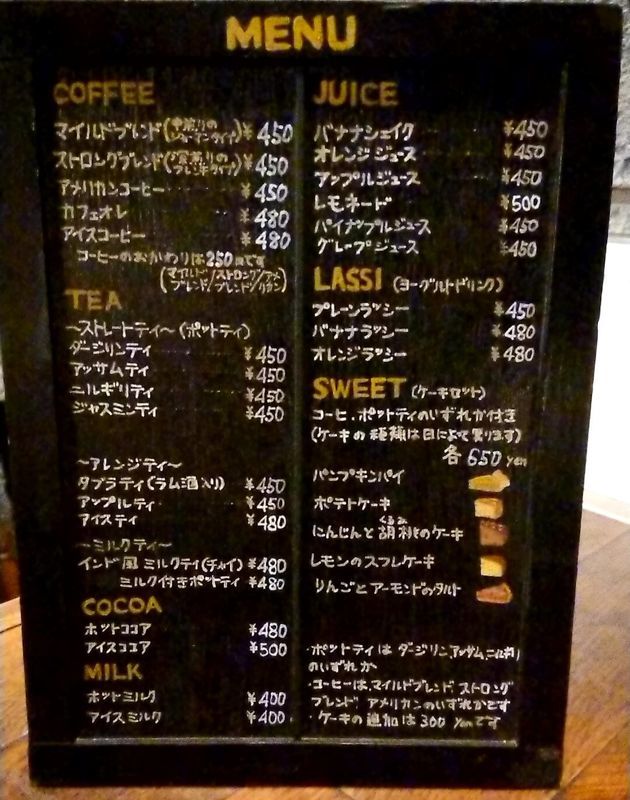 MENU
COFFEE
マイルドブレンド(中煎りのジャーマンタイプ) ¥450
ストロングブレンド(深煎りのフレンチタイプ) ¥450
アメリカンコーヒー ¥450
カフェオレ ¥480
アイスコーヒー ¥480
コーヒーのおかわりは250円です
(マイルド/ストロング/アメ
ブレンド/ブレンド/リカン)
TEA
～ストレートティ～(ポットティ)
ダージリンティ ¥450
アッサムティ ¥450
ニルギリティ ¥450
ジャスミンティ ¥450
～アレンジティ～
タブラティ(ラム酒入り) ¥450
アップルティ ¥450
アイスティ ¥480
～ミルクティ～
インド風ミルクティ(チャイ) ¥480
ミルク付きポットティ ¥480
COCOA
ホットココア ¥480
アイスココア ¥500
MILK
ホットミルク ¥400
アイスミルク ¥400
JUICE
バナナシェイク ¥450
オレンジジュース ¥450
アップルジュース ¥450
レモネード ¥500
パイナップルジュース ¥450
グレープジュース ¥450
LASSI (ヨーグルトドリンク)
プレーンラッシー ¥450
バナナラッシー ¥480
オレンジラッシー ¥480
SWEET (ケーキセット)
コーヒ,ポットティのいずれか付き
(ケーキの種類は日によって異ります)
各650yen
パンプキンパイ
ポテトケーキ
にんじんと胡桃のケーキ
くるみ
レモンのスフレケーキ
りんごとアーモンドのタルト
・ポットティはダージリン,アッサム,ニルギリ
のいずれか
・コーヒは,マイルドブレンド ストロング
ブレンド アメリカンのいずれかです
・ケーキの追加は300yenです